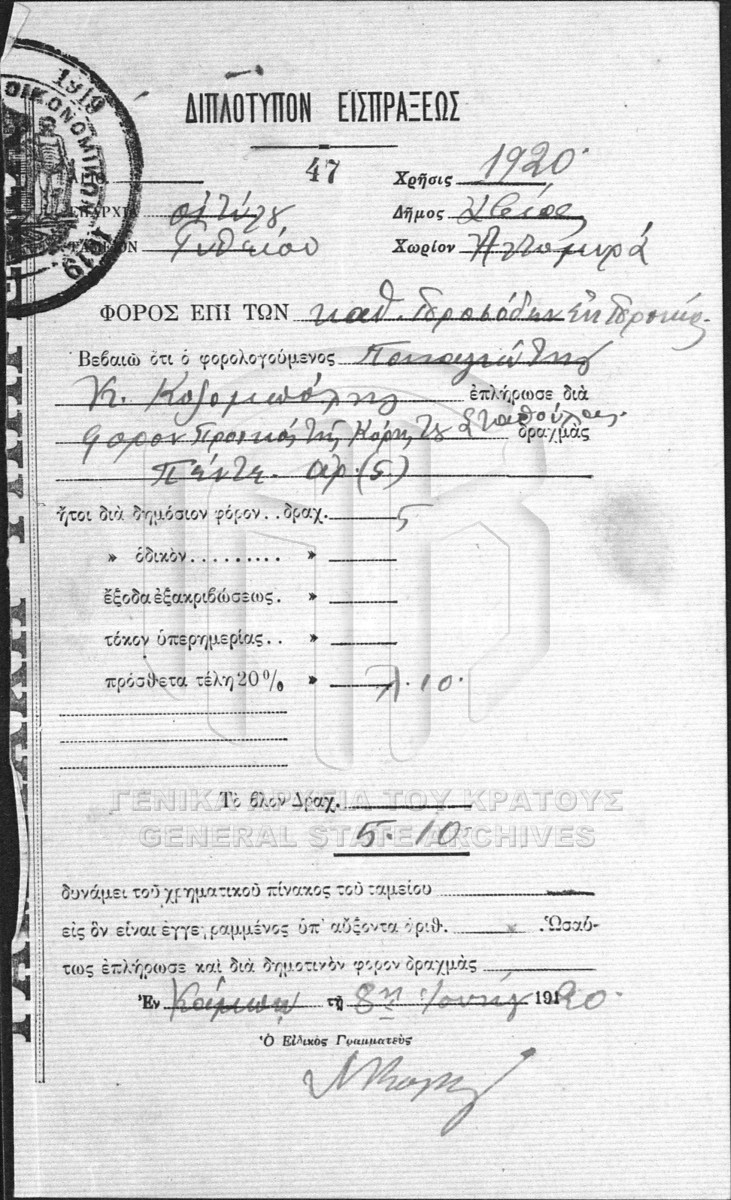 1919
ΟΙΚΟΝΟΜΙΚΩΝ
1919
ΔΙΠΛΟΤΥΠΟΝ ΕΙΣΠΡΑΞΕΩΣ
47
Χρῆσις 1920.
ΕΠΑΡΧΙΑ Οἰτύλου Δῆμος
ΤΑΜΕΙΟΝ Γυθείου Χωρίον Αλτομιρά
ΦΟΡΟΣ ΕΠΙ ΤΩΝ καθ.
Βεβαιῶ ὅτι ὁ φορολογούμενος Παναγιώτης
Κ. ἐπλήρωσε διὰ
φόρον Προικός τῆς Κόρης του Σταθούλας. δραχμὰς
Πέντε. ἀρ. (5.)
ἤτοι διὰ δημόσιον φόρον .. δραχ. 5
» ὁδικὸν.......... »
ἔξοδα ἐξακριβώσεως. »
τόκον ὑπερημερίας.. »
πρόσθετα τέλη 20% » λ. 10.
Τὸ ὅλον Δραχ.
5.10.
ΓΕΝΙΚΑ ΑΡΧΕΙΑ ΤΟΥ ΚΡΑΤΟΥΣ
GENERAL STATE ARCHIVES
δυνάμει τοῦ χρηματικοῦ πίνακος τοῦ ταμείου
εἰς ὃν εἶναι ἐγγεγραμμένος ὑπ' αὔξοντα ἀριθ. .Ὡσαύ-
τως ἐπλήρωσε καὶ διὰ δημοτινὸν φορον δραχμὰς
Ἐν Κάμπῳ τῇ 8η 1920.
Ὁ Εἰδικὸς Γραμματεὺς